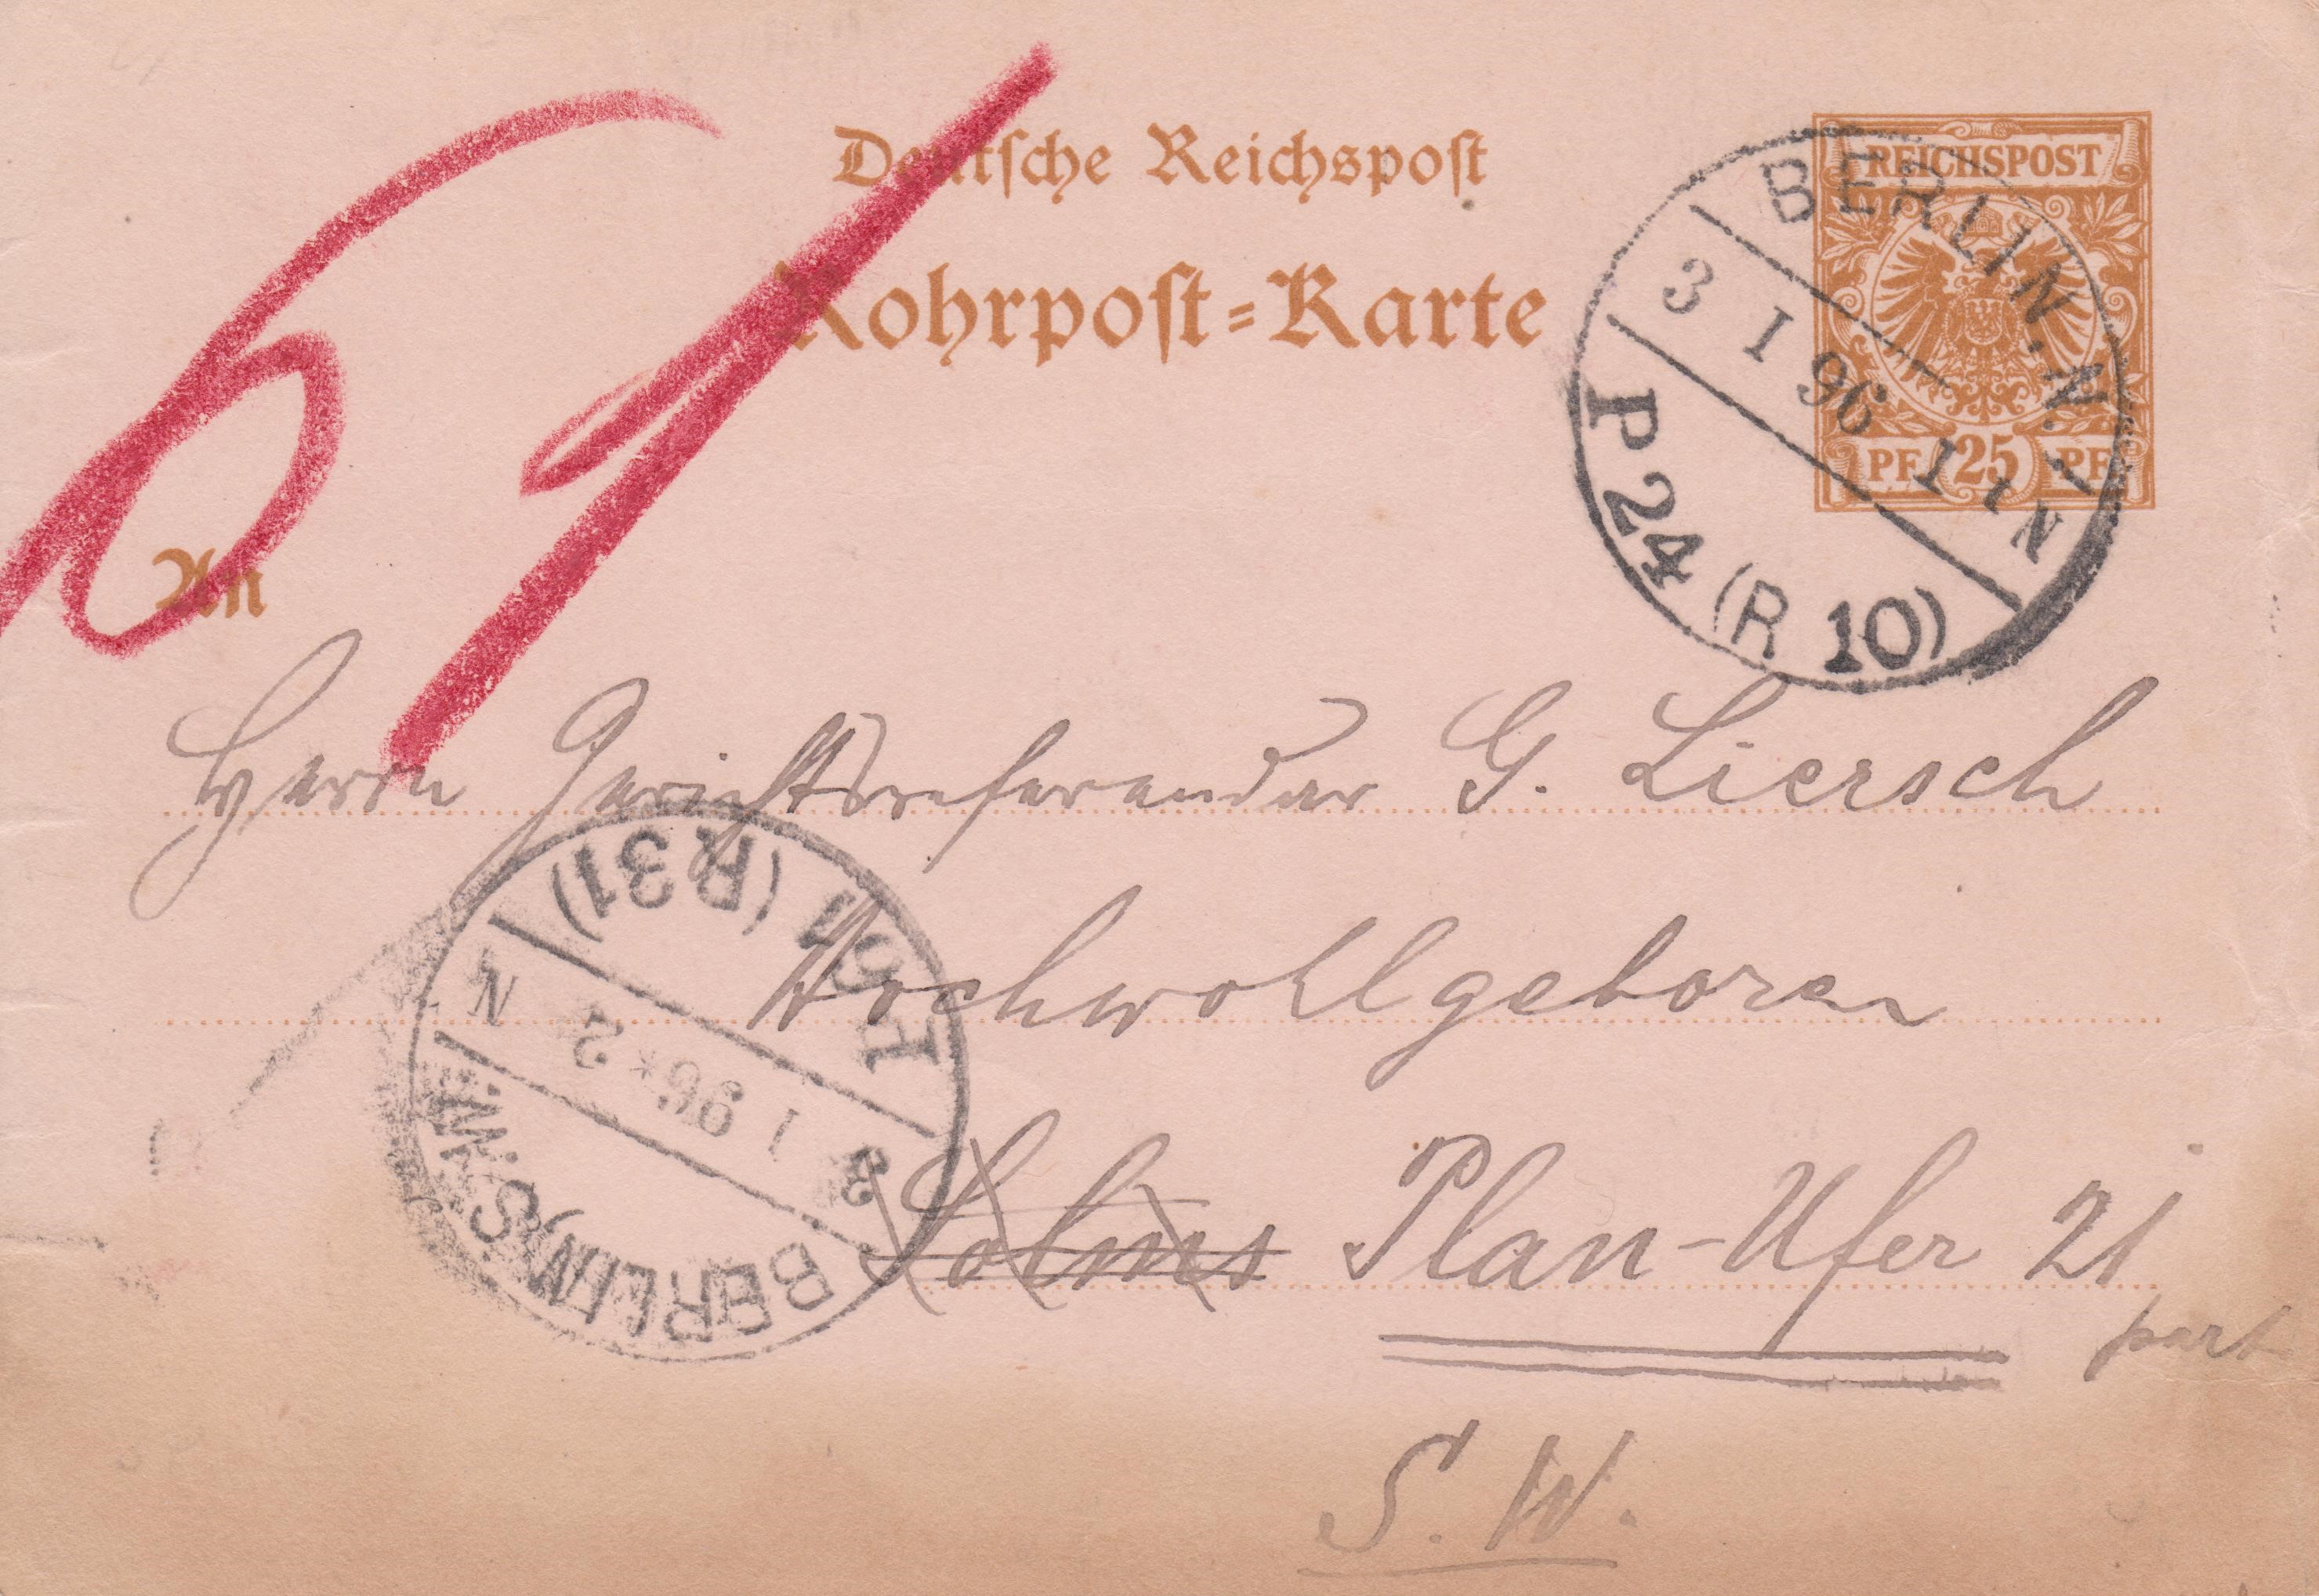 61
Deutsche Reichspost
Rohrpost-Karte
REICHSPOST
PF 25 PF
BERLIN, N.
3 I 96 I
N
P 24 (R 10)
An
Herrn Gerichtsreferendar G. Liersch
Hochwollgeboren
Solms Plan-Ufer 21
part
S. W.
P 61 (R 31)
3 1 96 * 2
N
BERLIN, S.W.